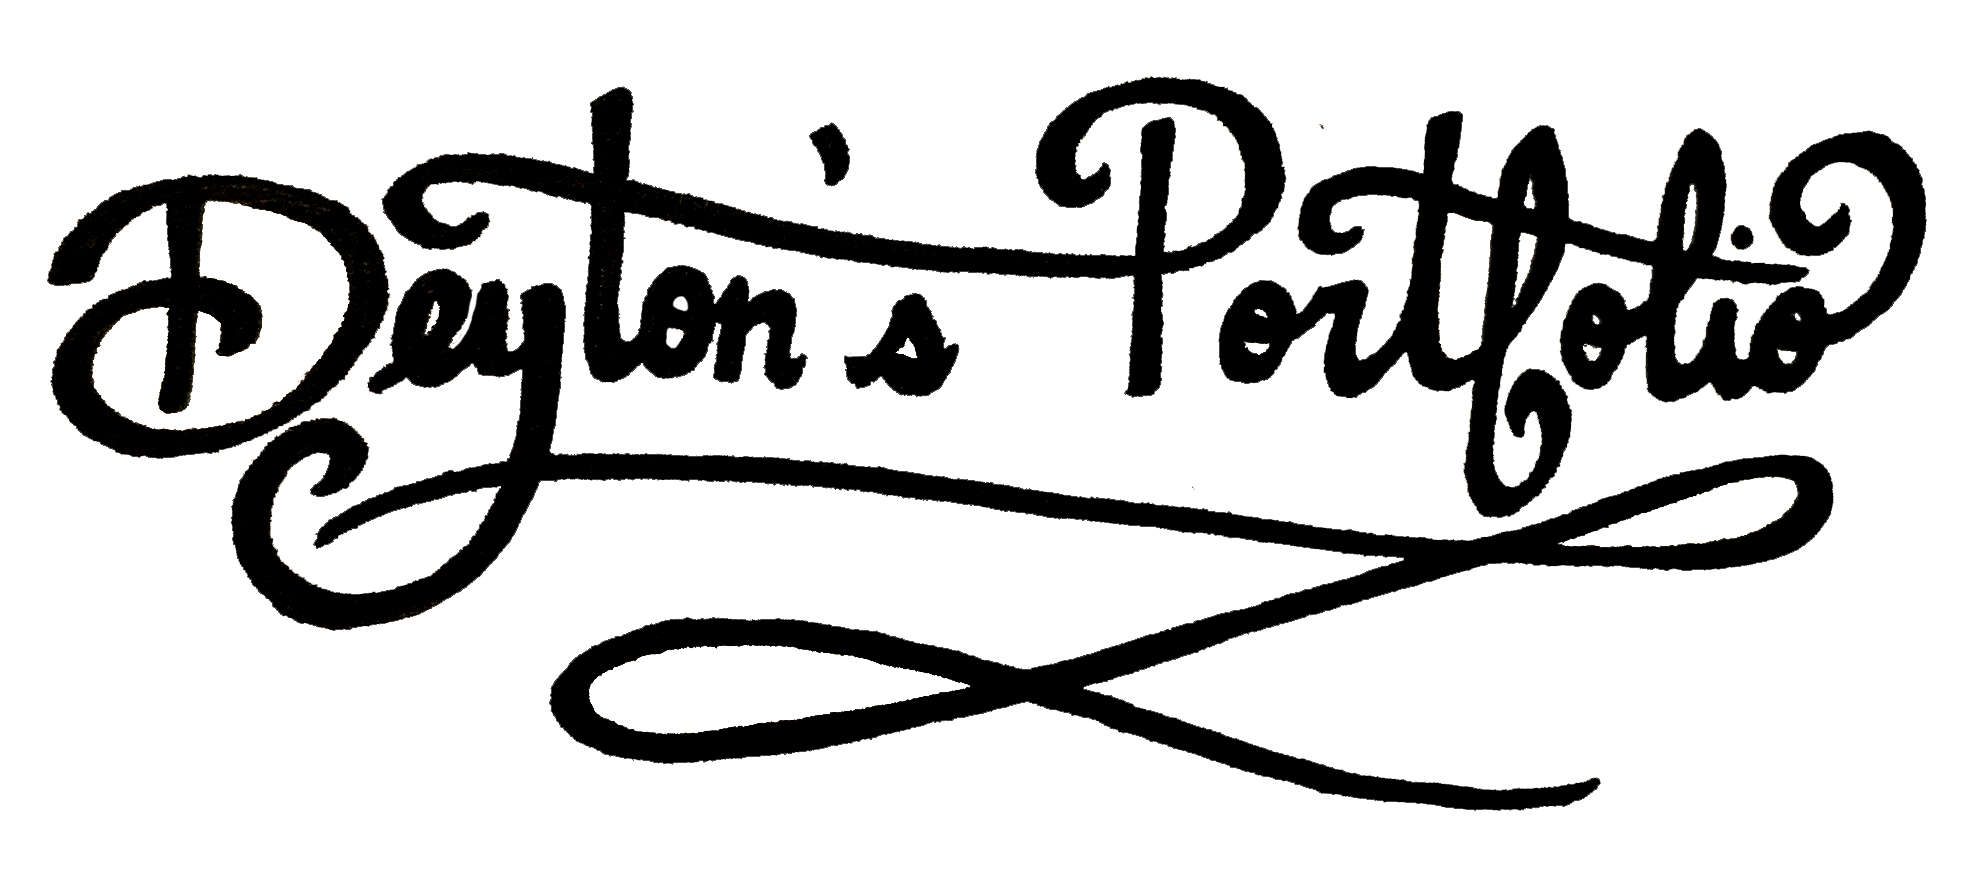 Deyton's Portfolio